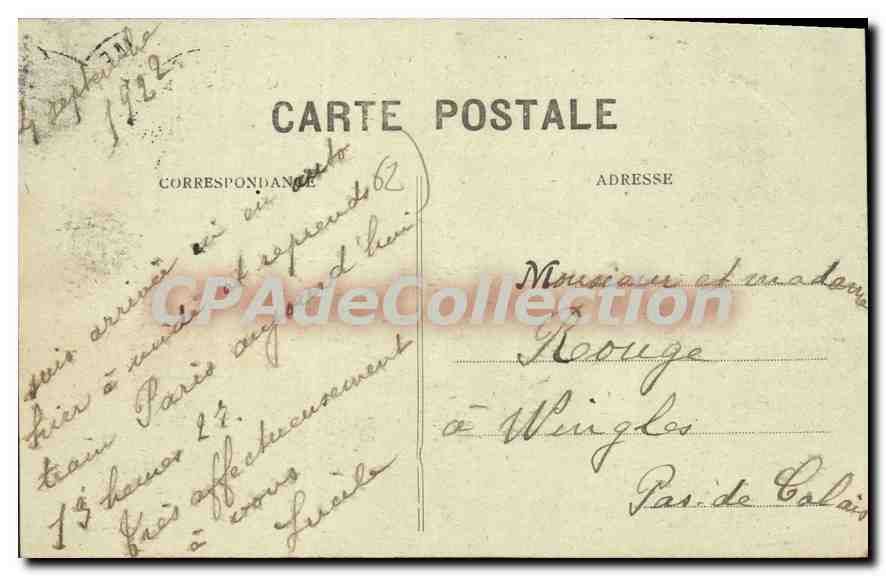 4 septembre
1922
CARTE POSTALE
CORRESPONDANCE
62
suis arrivée ici en auto
hier à midi et reprends
train Paris aujourd'hui
13 heures 27.
très affectueusement
à vous
Lucile
ADRESSE
Monsieur et madame
Rouge
à Wingles
Pas-de Calais
CPAdeCollection